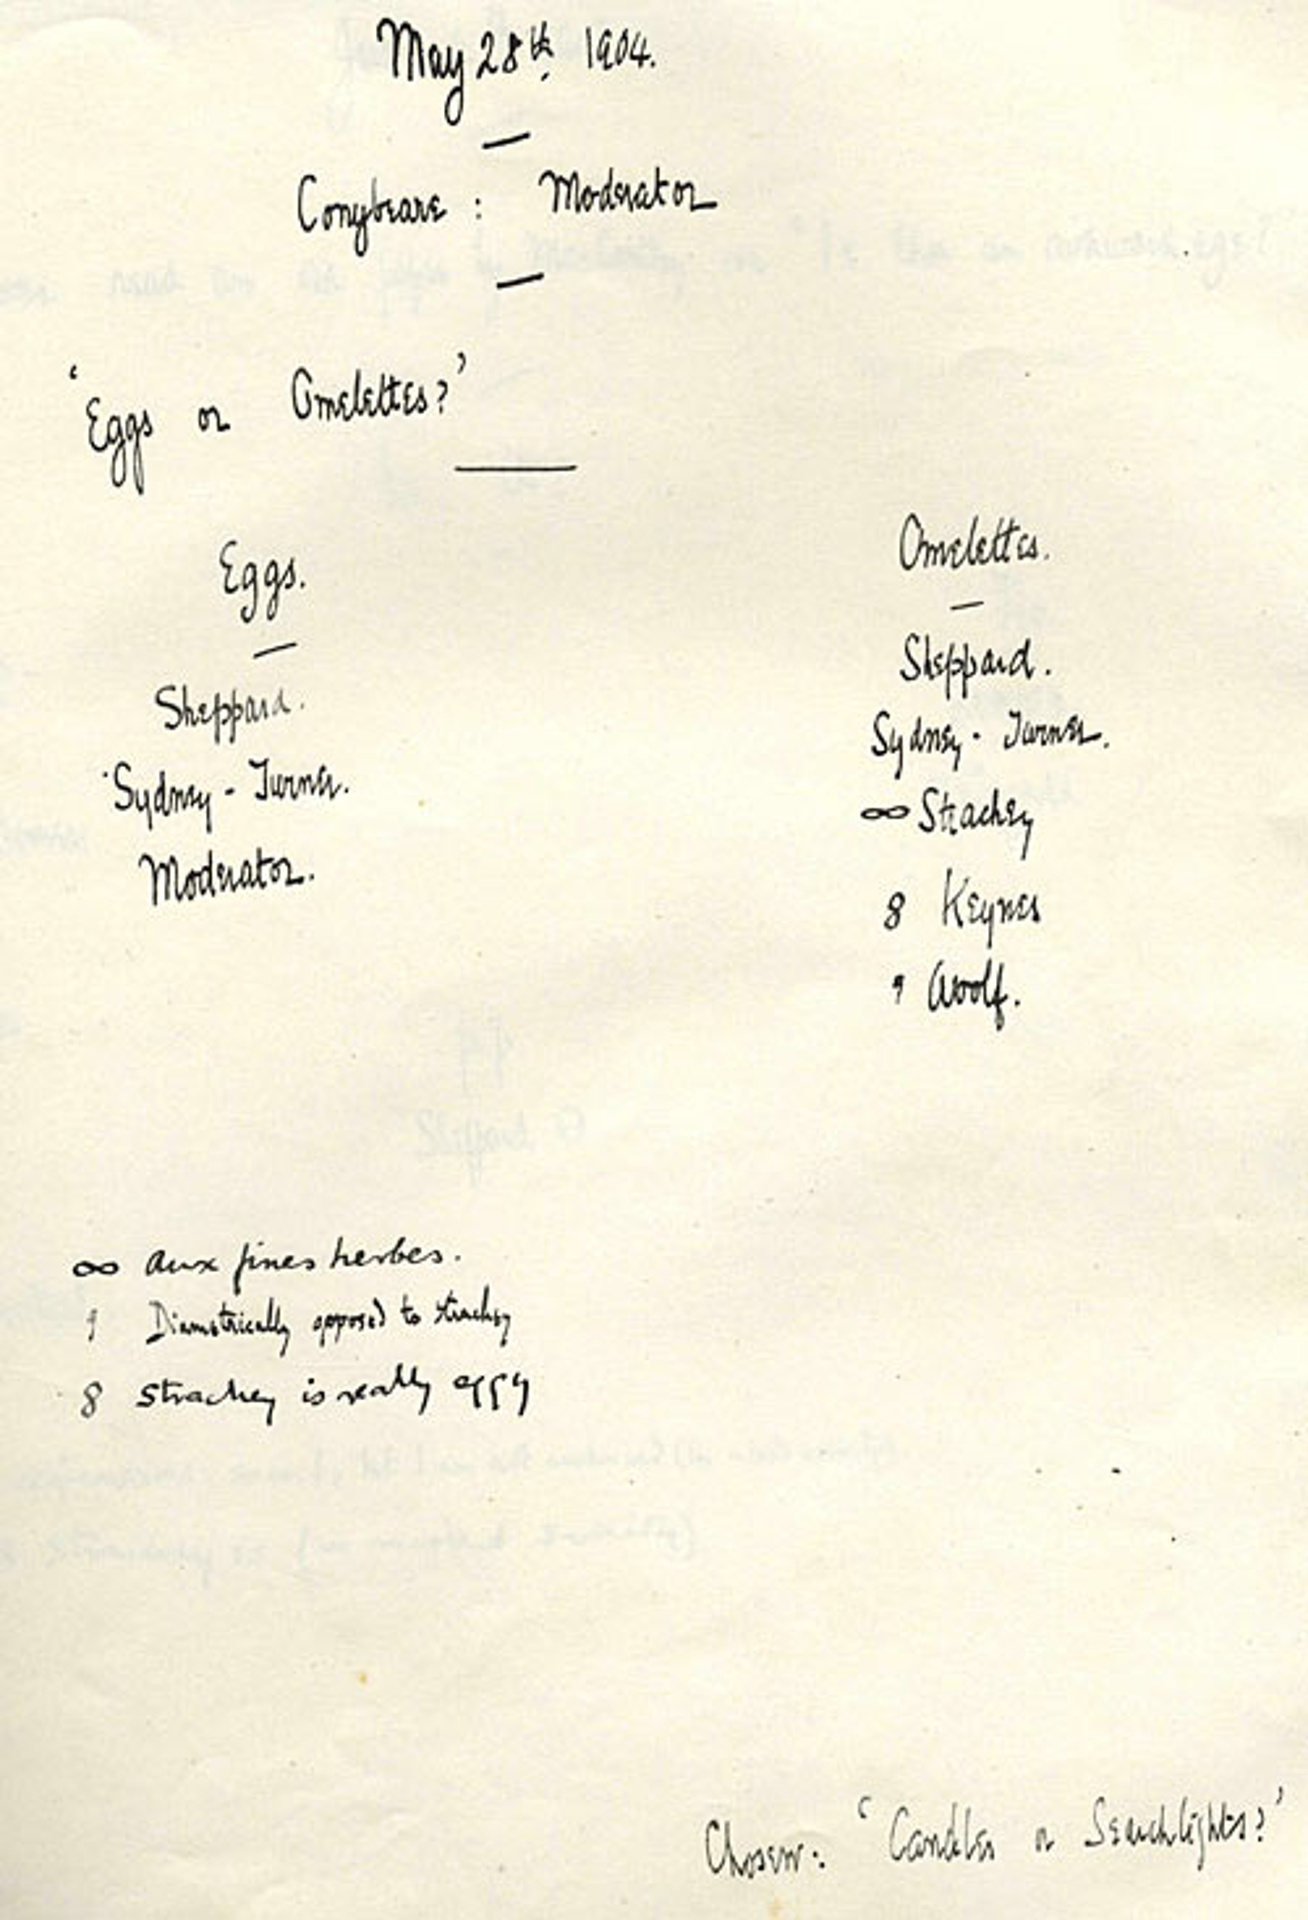 May 28th. 1904.
Conybeare : Moderator
'Eggs or Omelettes?'
Eggs.
Sheppard.
Sydney-Turner.
Moderator.
Omelettes.
Sheppard.
Sydney-Turner.
∞ Strachey
8 Keynes
9 Woolf.
∞ aux fines herbes.
9 Diametrically opposed to Strachey
8 Strachey is really eggy
Chosen: 'Candles or Searchlights?'